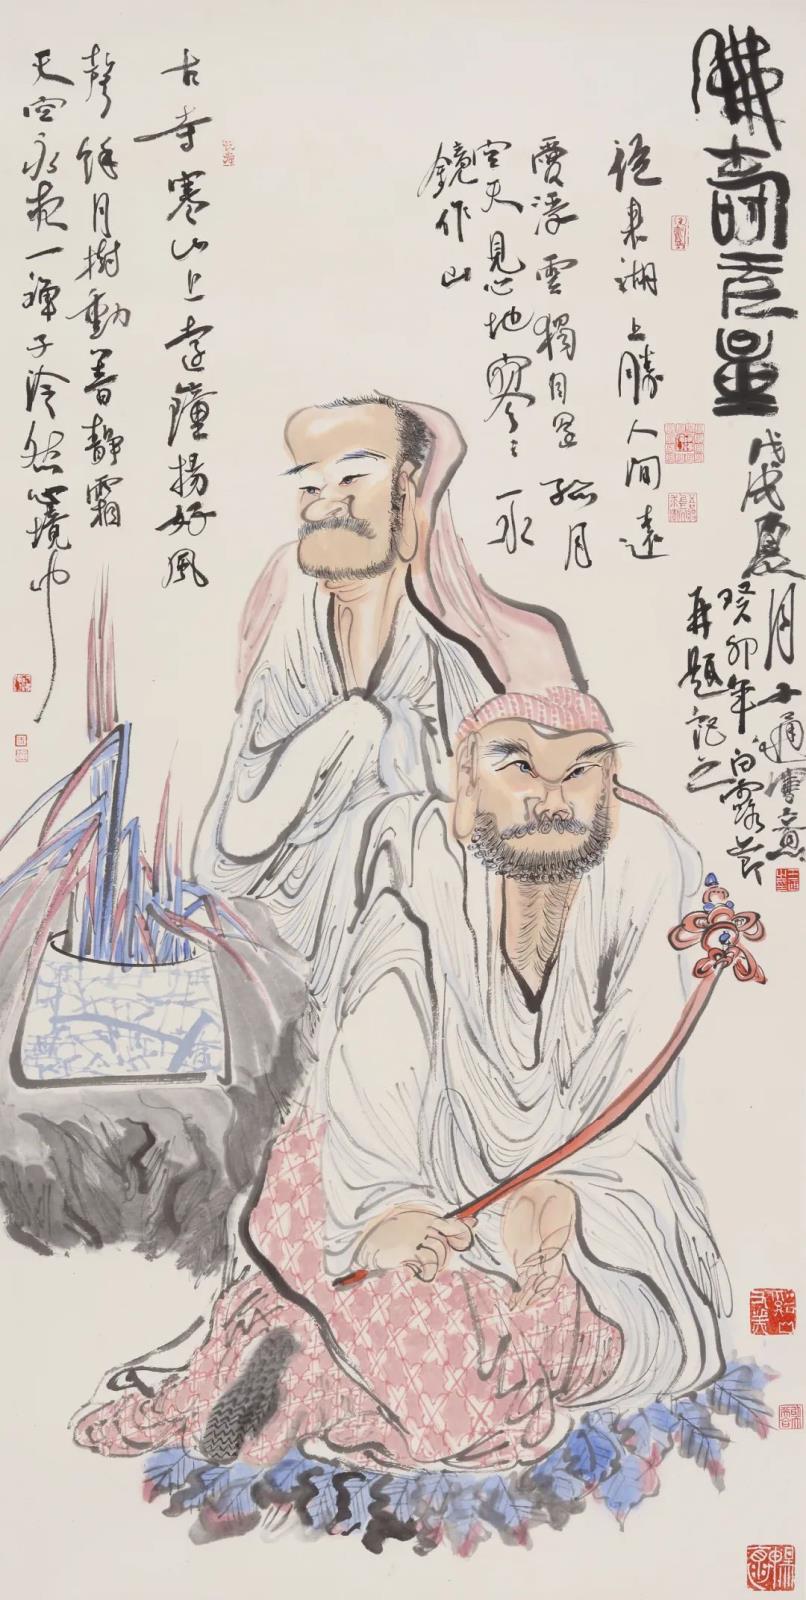 佛壽无量
戊戌夏月
癸卯年白露节
再題記之
從来湖上勝人间遠
愛浮雲獨自還孤月
空天見心地寥々一水
鏡作山
古寺寒山上遠鐘揚好風
聲餘月樹動響静霜
天空永夜一禪子泠然心境中